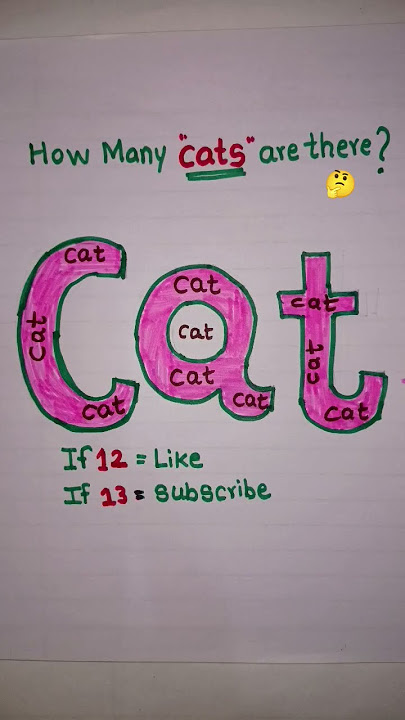 How Many "cats" are there?
Cat
cat
cat
cat
cat
cat
cat
cat
cat
cat
cat
If 12 = Like
If 13 = Subscribe